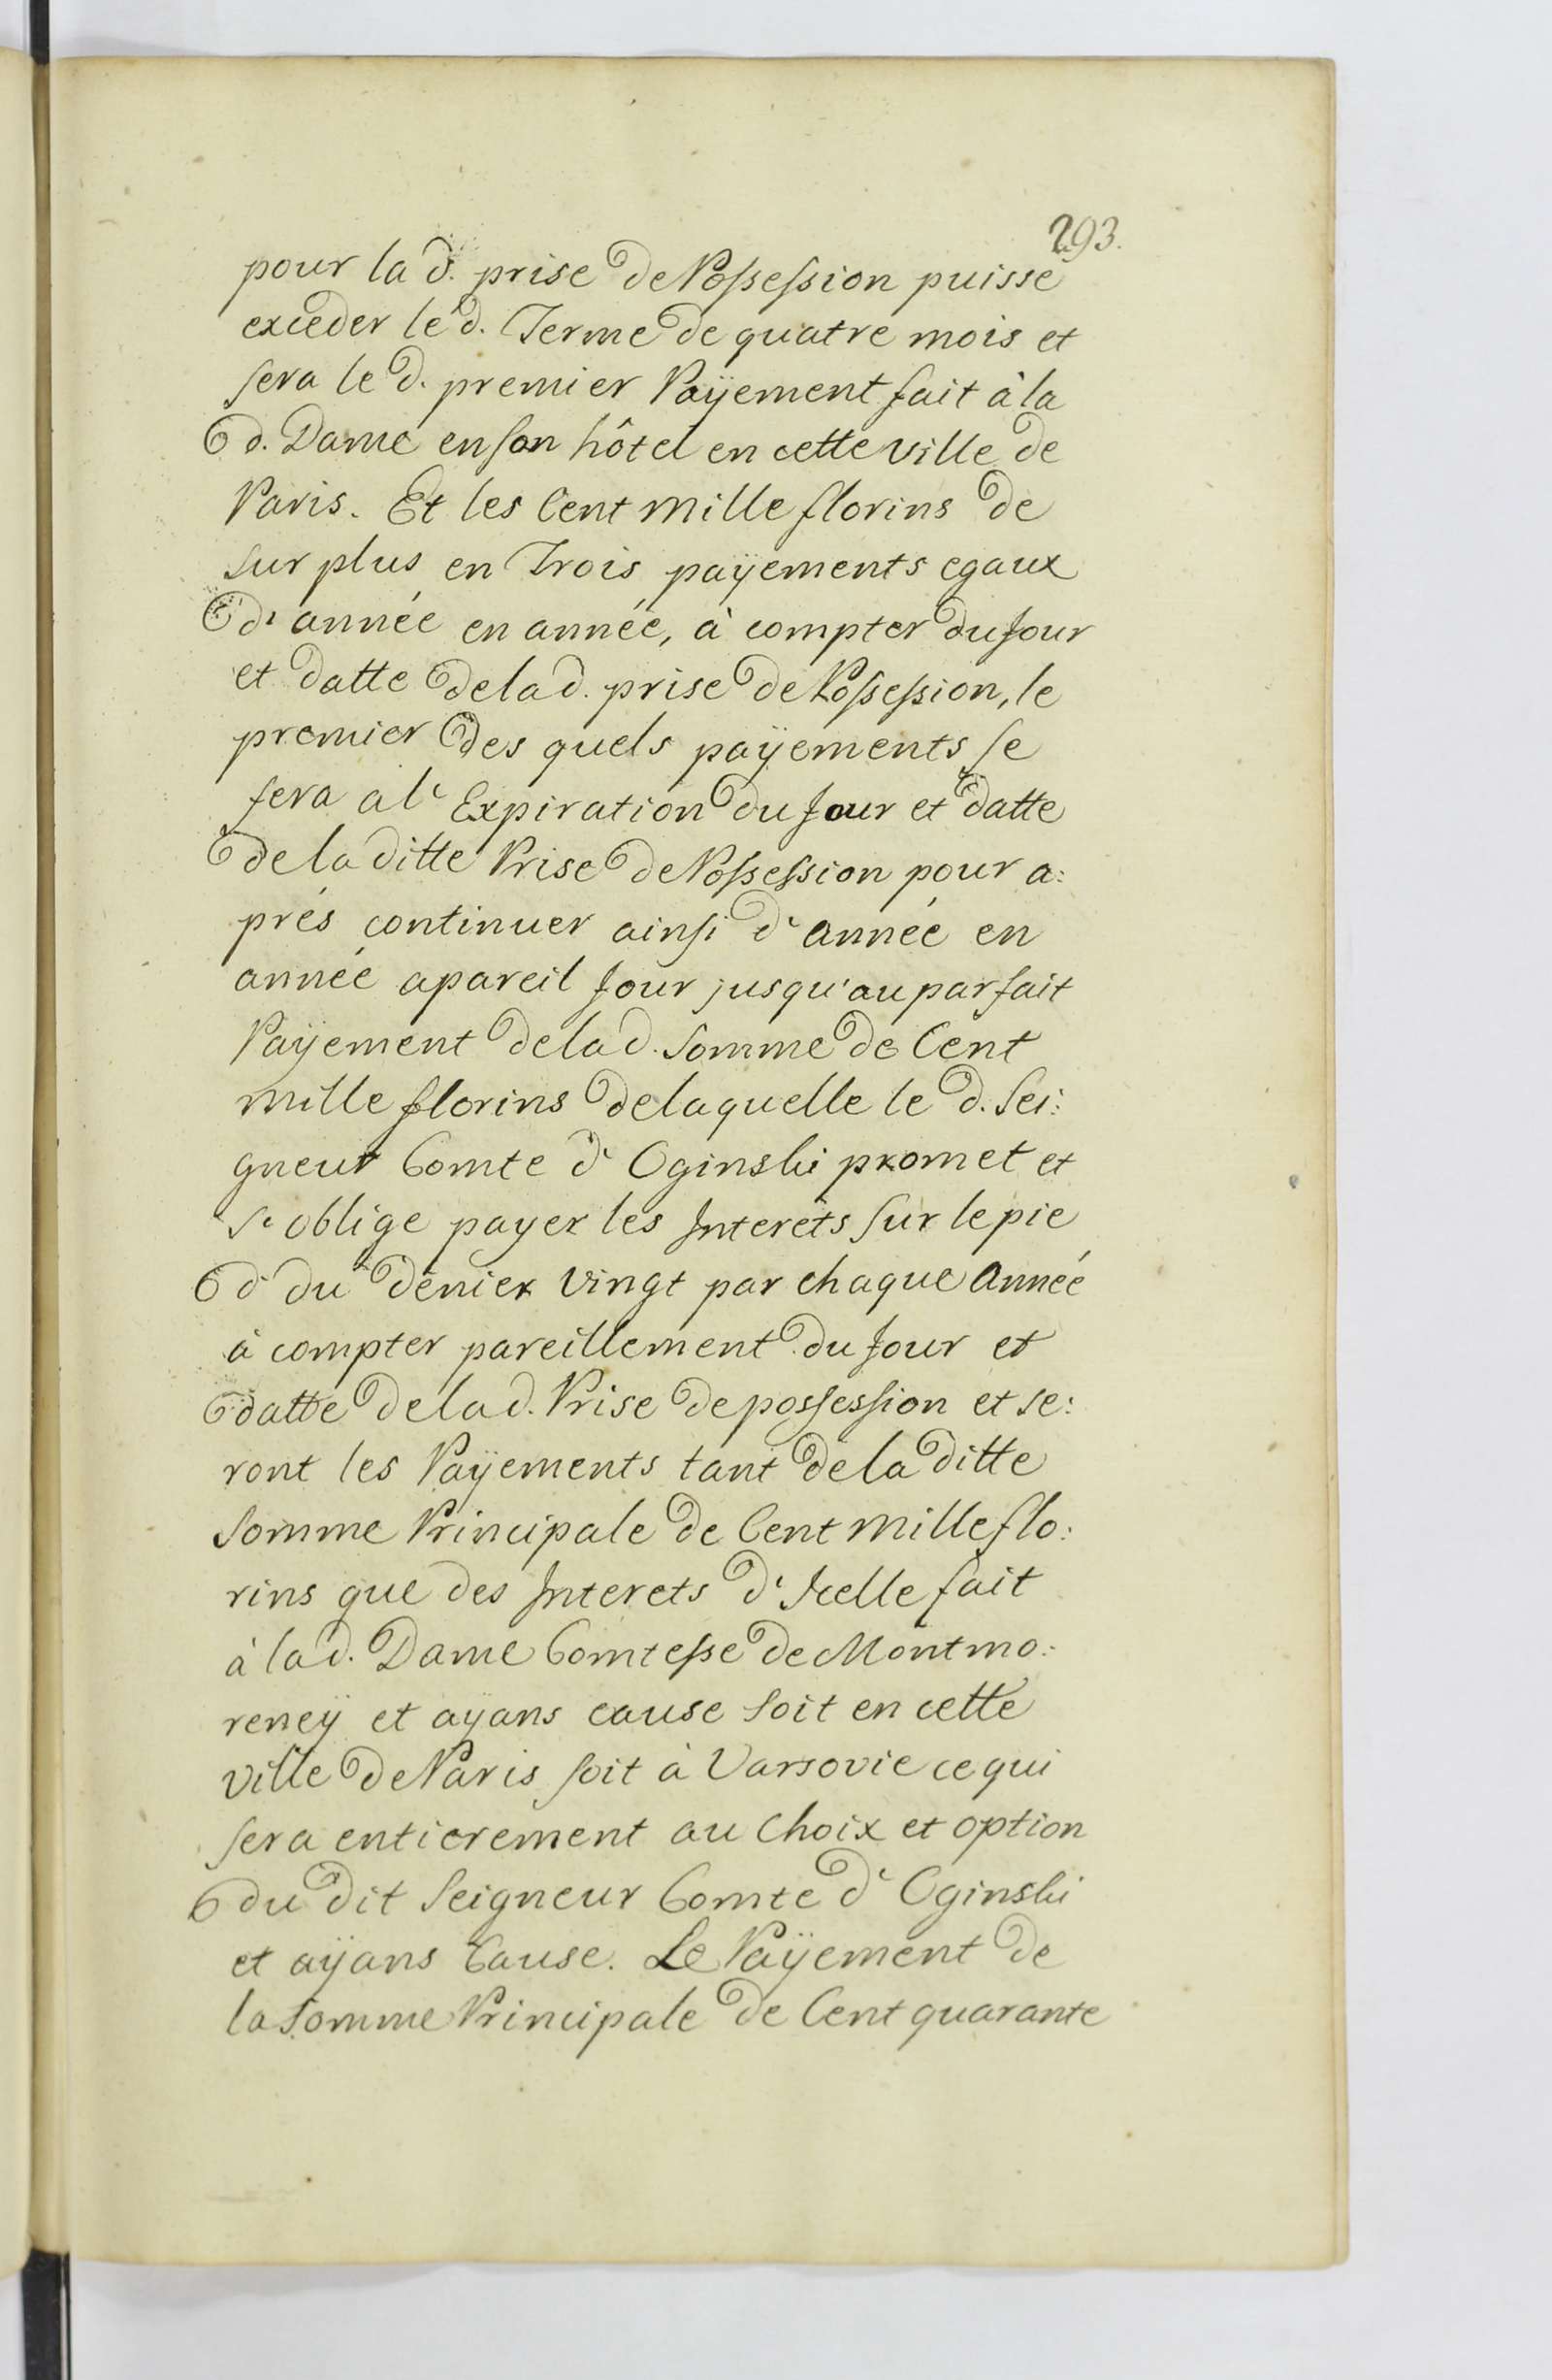 293.
pour la d. prise de Possession puisse
exceder le d. Terme de quatre mois et
sera le d. premier Payement fait à la
d. Dame en son hôtel en cette ville de
Paris. Et les Cent mille florins de
surplus en Trois payements egaux
d'année en année, à compter du Jour
et datte de la d. prise de Possession, le
premier des quels payements se
fera a l'Expiration du Jour et datte
de la ditte Prise de Possession pour a:
prés continuer ainsi d'année en
année a pareil Jour jusqu'au parfait
Payement de la d. Somme de Cent
mille florins de laquelle le d. Sei:
gneur Comte d'Oginski promet et
s'oblige payer les Interêts sur le pie
d du dénier Vingt par chaque Année
à compter pareillement du Jour et
datte de la d. Prise de possession et se:
ront les Payements tant de la ditte
Somme Principale de Cent mille flo:
rins que des Interets d'Icelle fait
à la d. Dame Comtesse de Montmo:
rency et ayans cause soit en cette
ville de Paris soit à Varsovie ce qui
sera entierement au choix et option
du dit Seigneur Comte d'Oginski
et ayans Cause. Le Payement de
la Somme Principale de Cent quarante